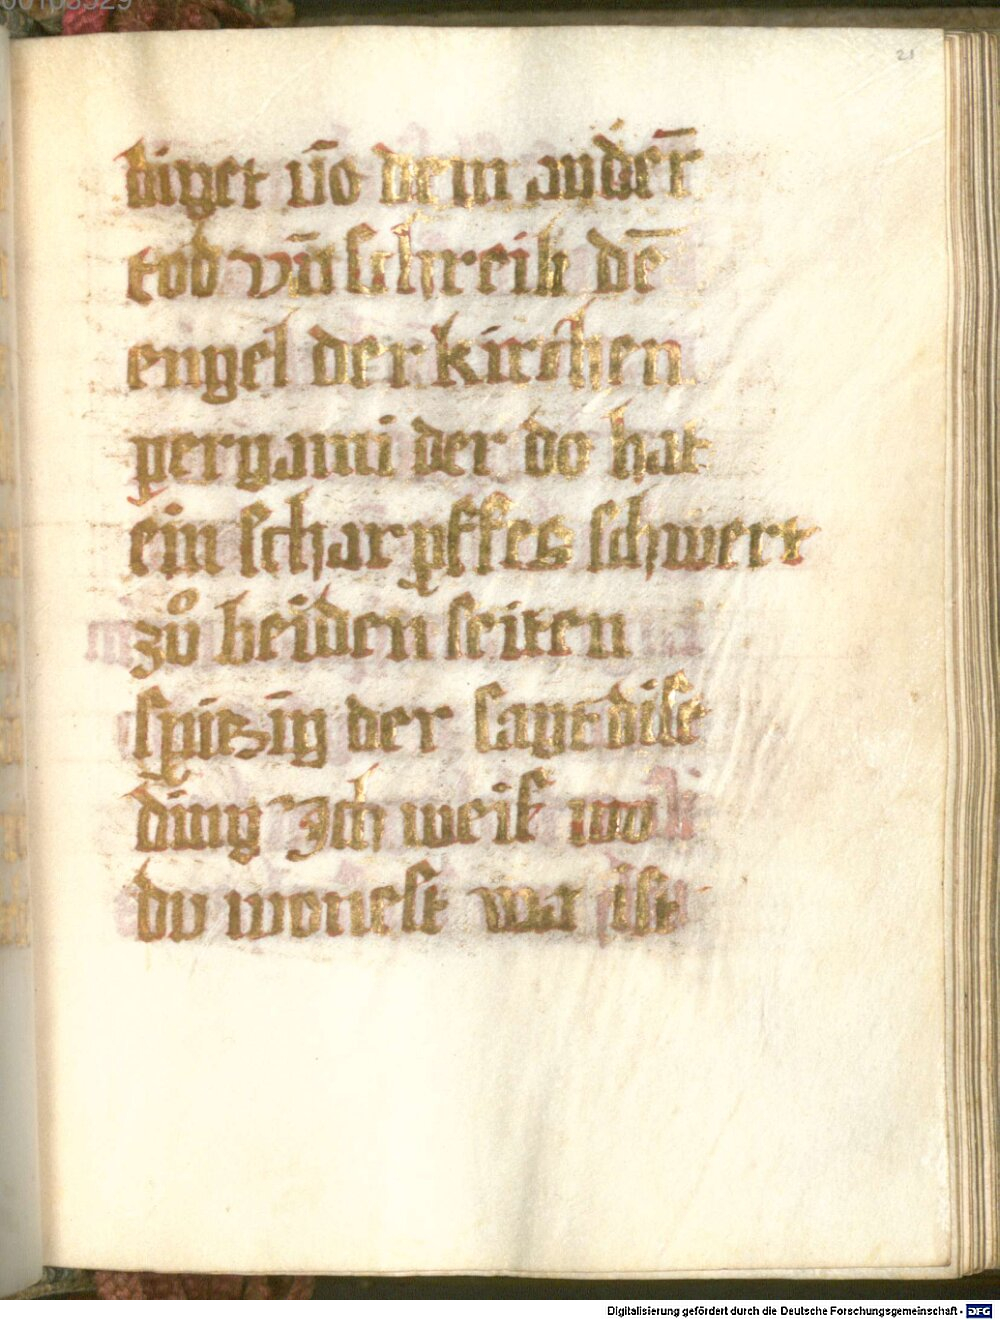 21
diget võ dem andeꝛ̄
tod vñ schreib dē
engel der kirchen
pergami der do hat
ein scharpffes schwert
zů beiden seiten
spitzig der sagt dise
ding Ich weis wo
du wonest wa ist
Digitalisierung gefördert durch die Deutsche Forschungsgemeinschaft - DFG